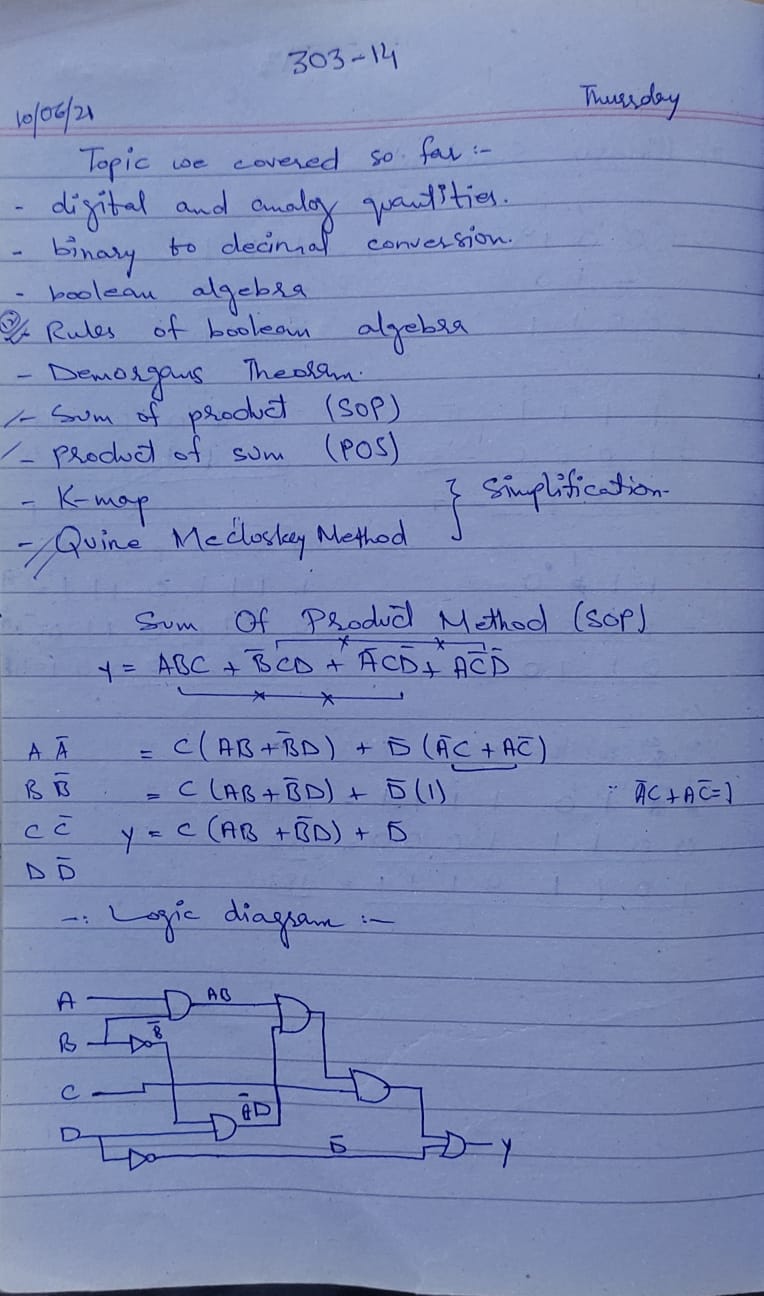 303-14
10/06/21 Thursday
Topic we covered so far :-
- digital and analog quantities.
- binary to decimal conversion.
- boolean algebra
- Rules of boolean algebra
- Demorgans Theoram.
- Sum of product (SOP)
- product of sum (POS)
- K-map } Simplification-
- Quine McCloskey Method
Sum Of Product Method (SOP)
Y = ABC + B̅CD + A̅CD̅ + AC̅D̅
A A̅ = C(AB + B̅D) + D̅(A̅C + AC̅)
B B̅ = C(AB + B̅D) + D̅(1) ∵ A̅C + AC̅ = 1
C C̅ y = C(AB + B̅D) + D̅
D D̅
-: Logic diagram :-
A AB
B B̅
C
D B̅D
D̅ Y